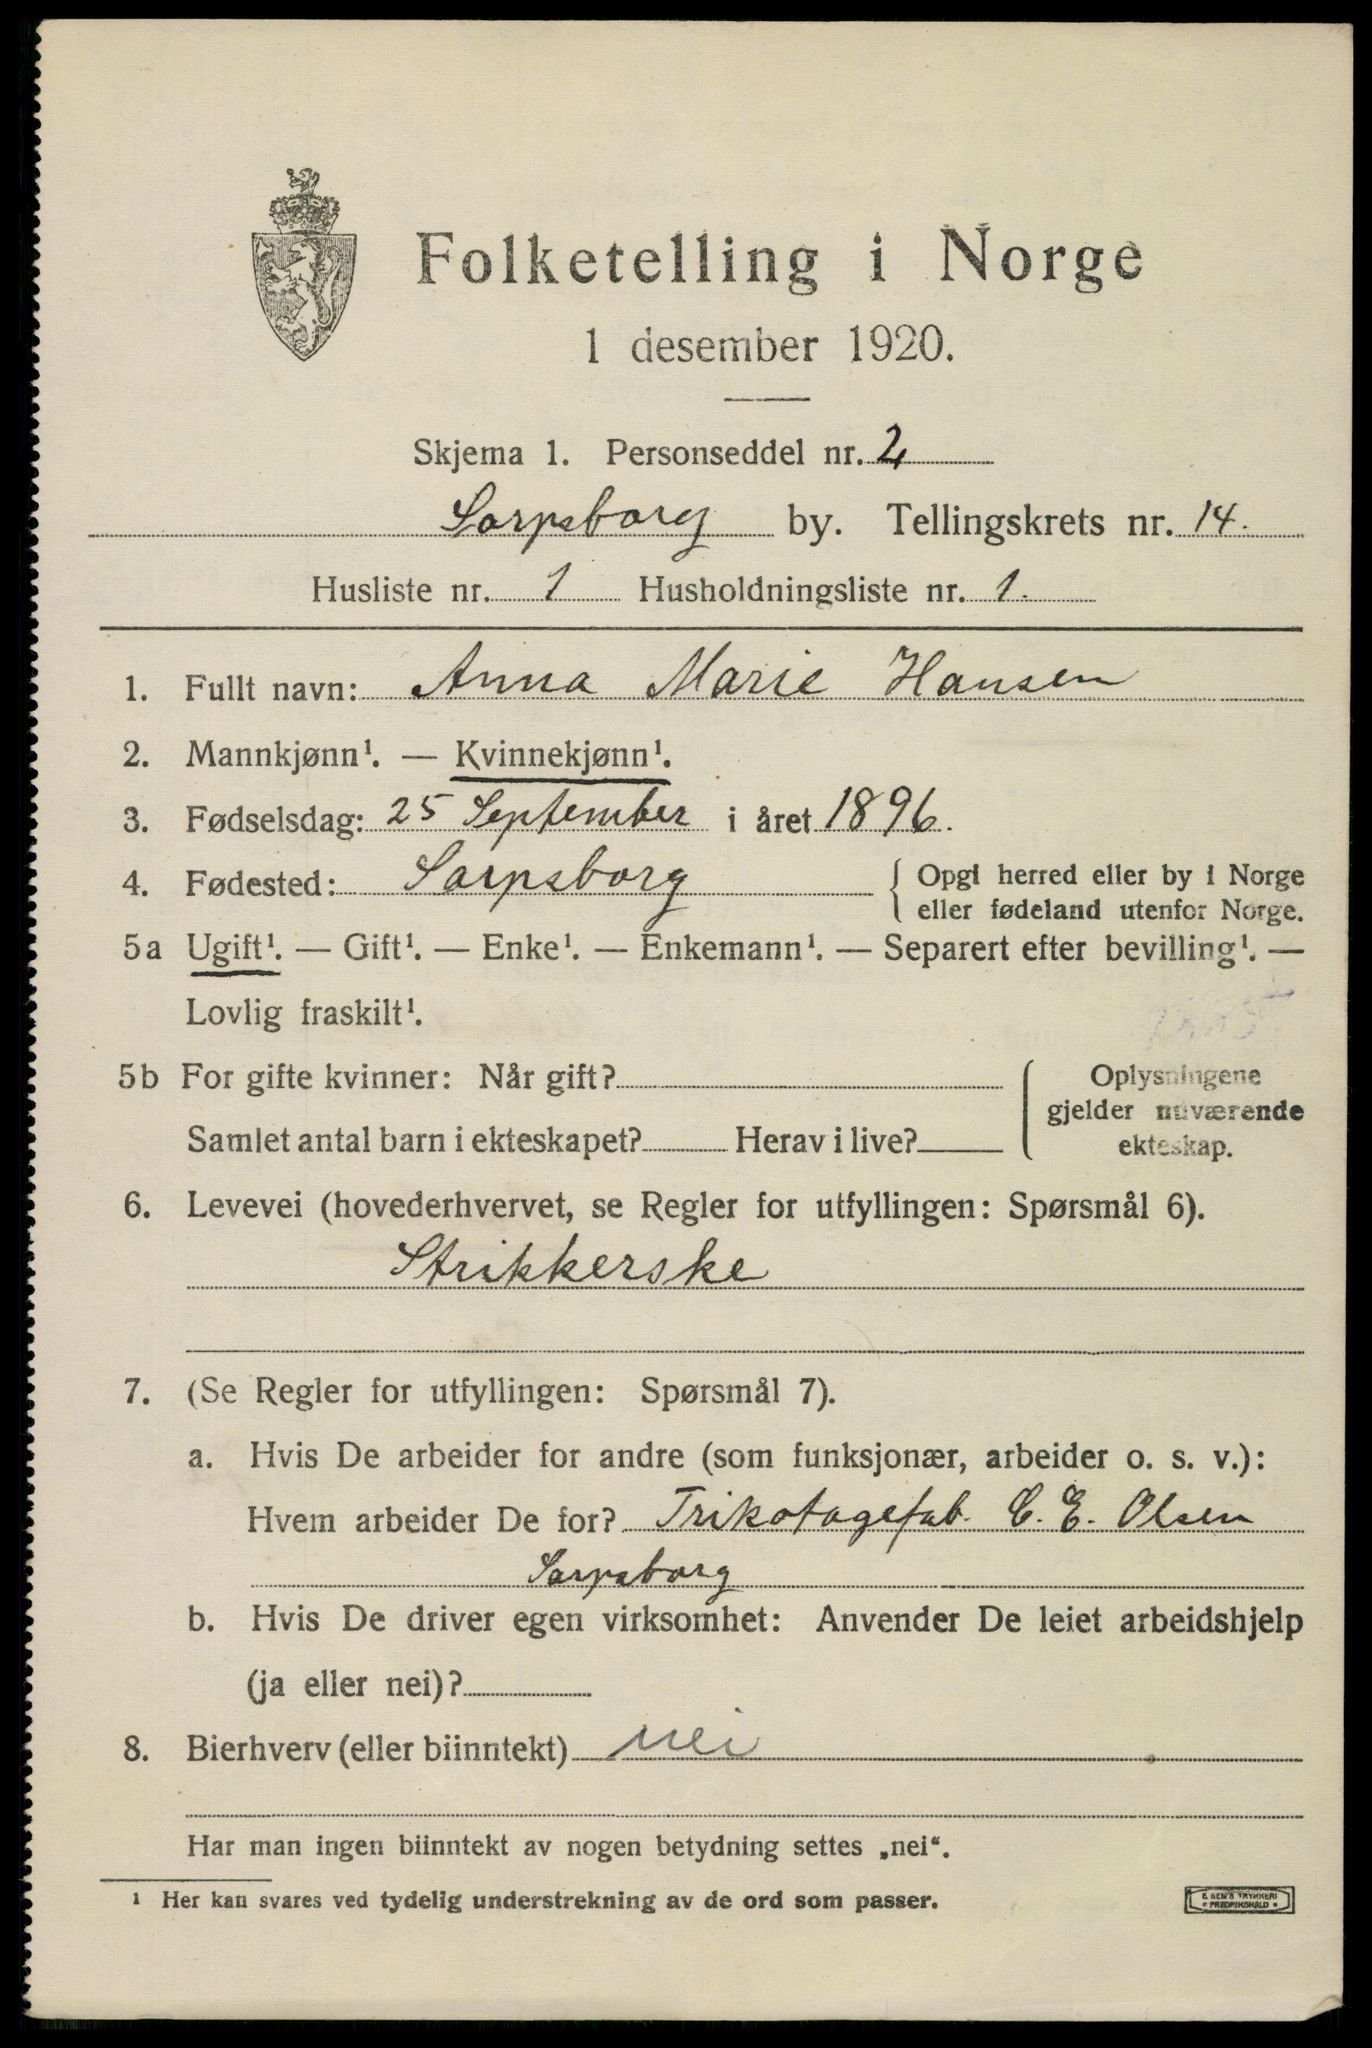 Folketelling i Norge
1 desember 1920.
Skjema 1. Personseddel nr. 2
Sarpsborg by. Tellingskrets nr. 14.
Husliste nr. 1 Husholdningsliste nr. 1.
1. Fullt navn: Anna Marie Hansen
2. Mannkjønn¹. — Kvinnekjønn¹.
3. Fødselsdag: 25 September i året 1896.
4. Fødested: Sarpsborg { Opgi herred eller by i Norge
eller fødeland utenfor Norge.
5a Ugift¹. — Gift¹. — Enke¹. — Enkemann¹. — Separert efter bevilling¹. —
Lovlig fraskilt¹.
5b For gifte kvinner: Når gift? { Oplysningene
gjelder nuværende
Samlet antal barn i ekteskapet? Herav i live? ekteskap.
6. Levevei (hovederhvervet, se Regler for utfyllingen: Spørsmål 6).
Strikkerske
7. (Se Regler for utfyllingen: Spørsmål 7).
a. Hvis De arbeider for andre (som funksjonær, arbeider o. s. v.):
Hvem arbeider De for? Trikotagefab. C. E. Olsen
Sarpsborg
b. Hvis De driver egen virksomhet: Anvender De leiet arbeidshjelp
(ja eller nei)?
8. Bierhverv (eller biinntekt) nei
Har man ingen biinntekt av nogen betydning settes „nei“.
¹ Her kan svares ved tydelig understrekning av de ord som passer.
E. SEM'S TRYKKERI
• FREDRIKSHALD •